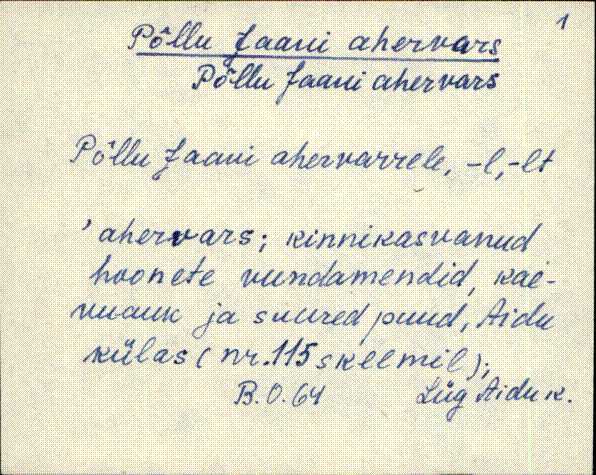 1
Põllu Jaani ahervars
Põllu Jaani ahervars
Põllu Jaani ahervarrele, -l, -lt
'ahervars; kinnikasvanud
hoonete vundamendid, kae-
vuauk ja suured puud, Aidu
külas (nr. 115 skeemil);
B.O. 64 Lüg Aidu k.